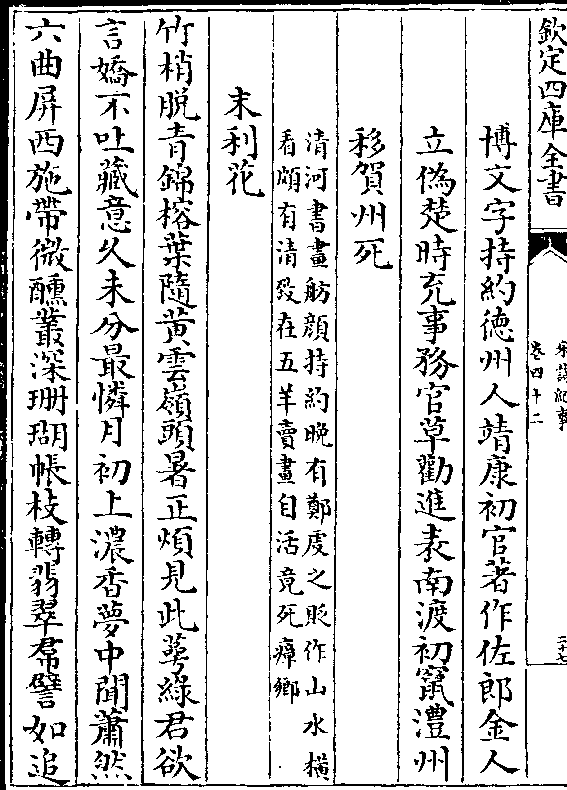 欽定四庫全書
宋詩紀事
卷四十二
博文字持約徳州人靖康初官著作佐郎金人
立偽楚時充事務官草勸進表南渡初竄澧州
移賀州死
清河書畫舫顔持約晚有鄭虔之貶作山水横
看頗有清致在五羊賣畫自活竟死瘴鄉
末利花
竹梢脱青錦榕葉隨黄雲嶺頭暑正煩見此萼綠君欲
言嬌不吐藏意久未分最憐月初上濃香夢中聞蕭然
六曲屏西施帶微醺叢深珊瑚帳枝轉翡翠帬譬如追